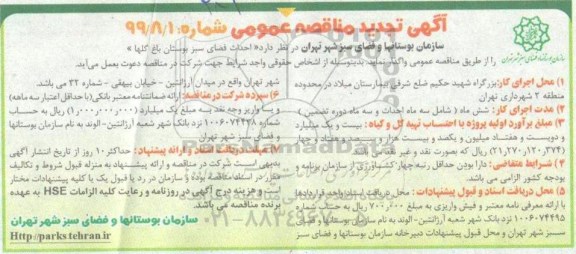 آگهی تجدید مناقصه عمومی شماره: ۹۹/۸/۱
سازمان بوستانها و فضای سبز شهر تهران در نظر دارد « احداث فضای سبز بوستان باغ گلها »
را از طریق مناقصه عمومی واگذار نماید. بدینوسیله از اشخاص حقوقی واجد شرایط جهت شرکت در مناقصه دعوت بعمل می‌آید.
۱) محل اجرای کار: بزرگراه شهید حکیم ضلع شرقی بیمارستان میلاد در محدوده
منطقه ۲ شهرداری تهران
۲) مدت اجرای کار: شش ماه ( شامل سه ماه احداث و سه ماه دوره تضمین )
۳) مبلغ برآورد اولیه پروژه با احتساب تهیه گل و گیاه: بیست و یک میلیارد
و دویست و هفتاد میلیون و یکصد و بیست هزار و سیصد و هفتاد و چهار
(۲۱،۲۷۰،۱۲۰،۳۷۴) ریال که بصورت نقد و غیر نقد
۴) شرایط متقاضی: دارا بودن حداقل رتبه چهار کشاورزی از سازمان برنامه و
بودجه کشور الزامی می باشد.
۵) محل دریافت اسناد و قبول پیشنهادات: محل دریافت اسناد واحد قراردادها
با ارائه معرفی نامه معتبر و فیش واریزی به مبلغ ۷۰۰،۰۰۰ ریال به حساب شماره
۱۰۰۶۰۷۴۴۹۵ نزد بانک شهر شعبه آرژانتین - الوند به نام سازمان بوستانها و فضای
سبز شهر تهران و محل قبول پیشنهادات دبیرخانه سازمان بوستانها و فضای سبز
شهر تهران واقع در میدان آرژانتین - خیابان بیهقی - شماره ۳۲ می باشد.
۶) سپرده شرکت در مناقصه: ارائه ضمانتنامه معتبر بانکی (با حداقل اعتبار سه ماهه)
و یا واریز وجه نقد به مبلغ یک میلیارد (۱،۰۰۰،۰۰۰،۰۰۰) ریال به حساب
شماره ۱۰۰۶۰۷۴۴۹۸ نزد بانک شهر شعبه آرژانتین - الوند به نام سازمان بوستانها
و فضای سبز شهر تهران
حداکثر ۱۰ روز از تاریخ انتشار آگهی
بدیهی است شرکت در مناقصه و ارائه پیشنهاد به منزله قبول شروط و تکالیف
مقرر در اسناد مناقصه بوده و سازمان در رد یا قبول یک یا کلیه پیشنهادات مختار
است و هزینه درج آگهی در روزنامه و رعایت کلیه الزامات HSE به عهده
برنده مناقصه می باشد.
سازمان بوستانها و فضای سبز شهر تهران
Http://parks.tehran.ir